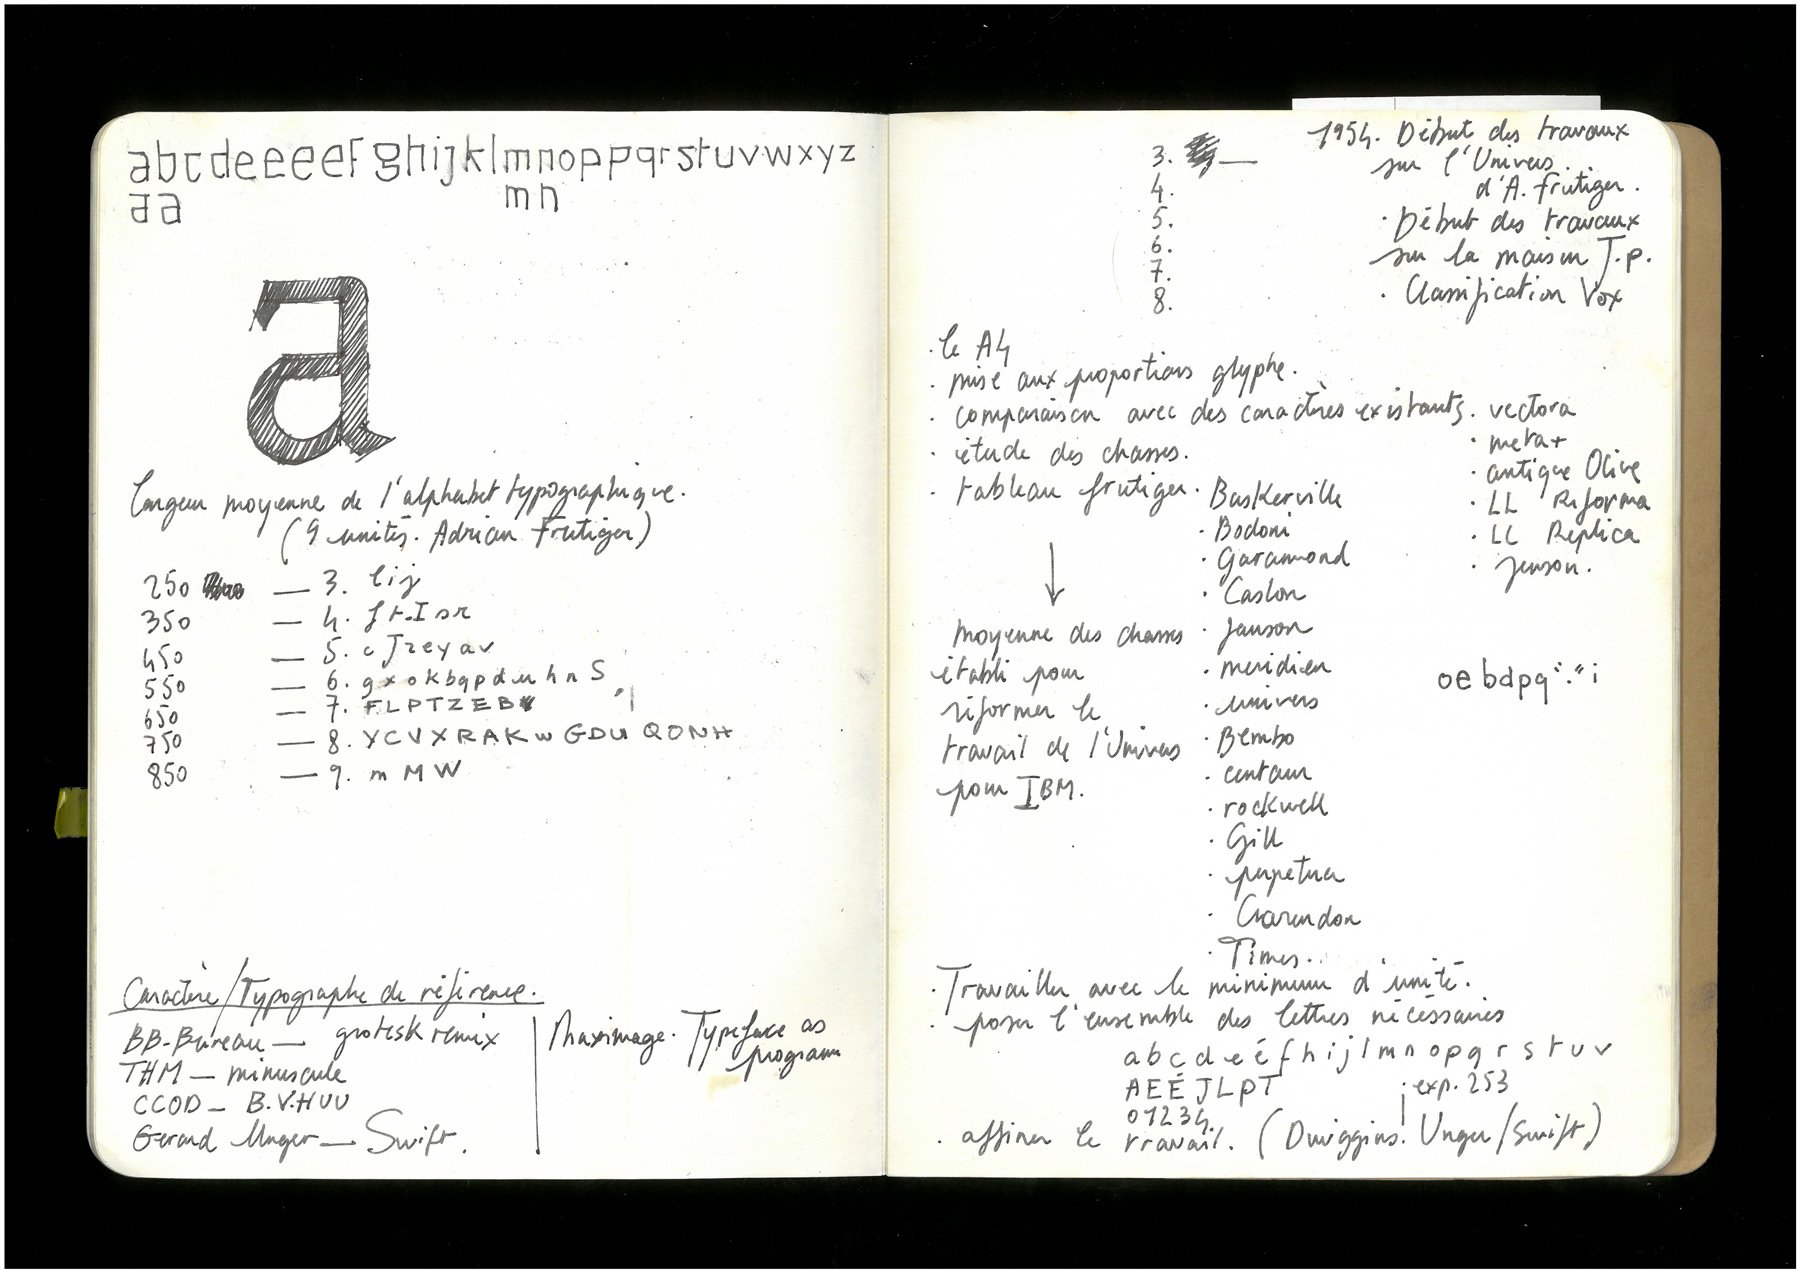 abcdeeeefghijklmnoppqrstuvwxyz
aa
mn
a
Largeur moyenne de l'alphabet typographique.
(9 unités. Adrian Frutiger)
250 — 3. lij
350 — 4. ft-Isr
450 — 5. cJzeyav
550 — 6. gxokbqpduhnS
650 — 7. FLPTZEB
750 — 8. YCVXRAKwGDUQONH
850 — 9. mMW
Caractère/Typographe de référence.
BB-Bureau — grotesk remix
THM — minuscule
CCOD — B.V.HUU
Gerard Unger — Swift.
Maximage. Typeface as
program
3. —
4.
5.
6.
7.
8.
1954. Début des travaux
sur l'Univers
d'A. Frutiger.
· Début des travaux
sur la maison J.P.
· Classification Vox
· le A4
· mise aux proportions glyphe.
· comparaison avec des caractères existants.
· étude des chasses.
· tableau frutiger.
· vectora
· meta+
· antique Olive
· LL Riforma
· LL Replica
· Jenson.
· Baskerville
· Bodoni
· Garamond
· Caslon
· Janson
· meridien
· univers
· Bembo
· centaur
· rockwell
· Gill
· perpetua
· Clarendon
· Times.
moyenne des chasses
établi pour
réformer le
travail de l'Univers
pour IBM.
oebdpq":"i
· Travailler avec le minimum d'unité.
· poser l'ensemble des lettres nécéssaires
abcdeéfhijlmnopqrstuv
AEÉJLPT
01234.
· exp. 253
· affiner le travail. (Dwiggins. Unger/Swift)